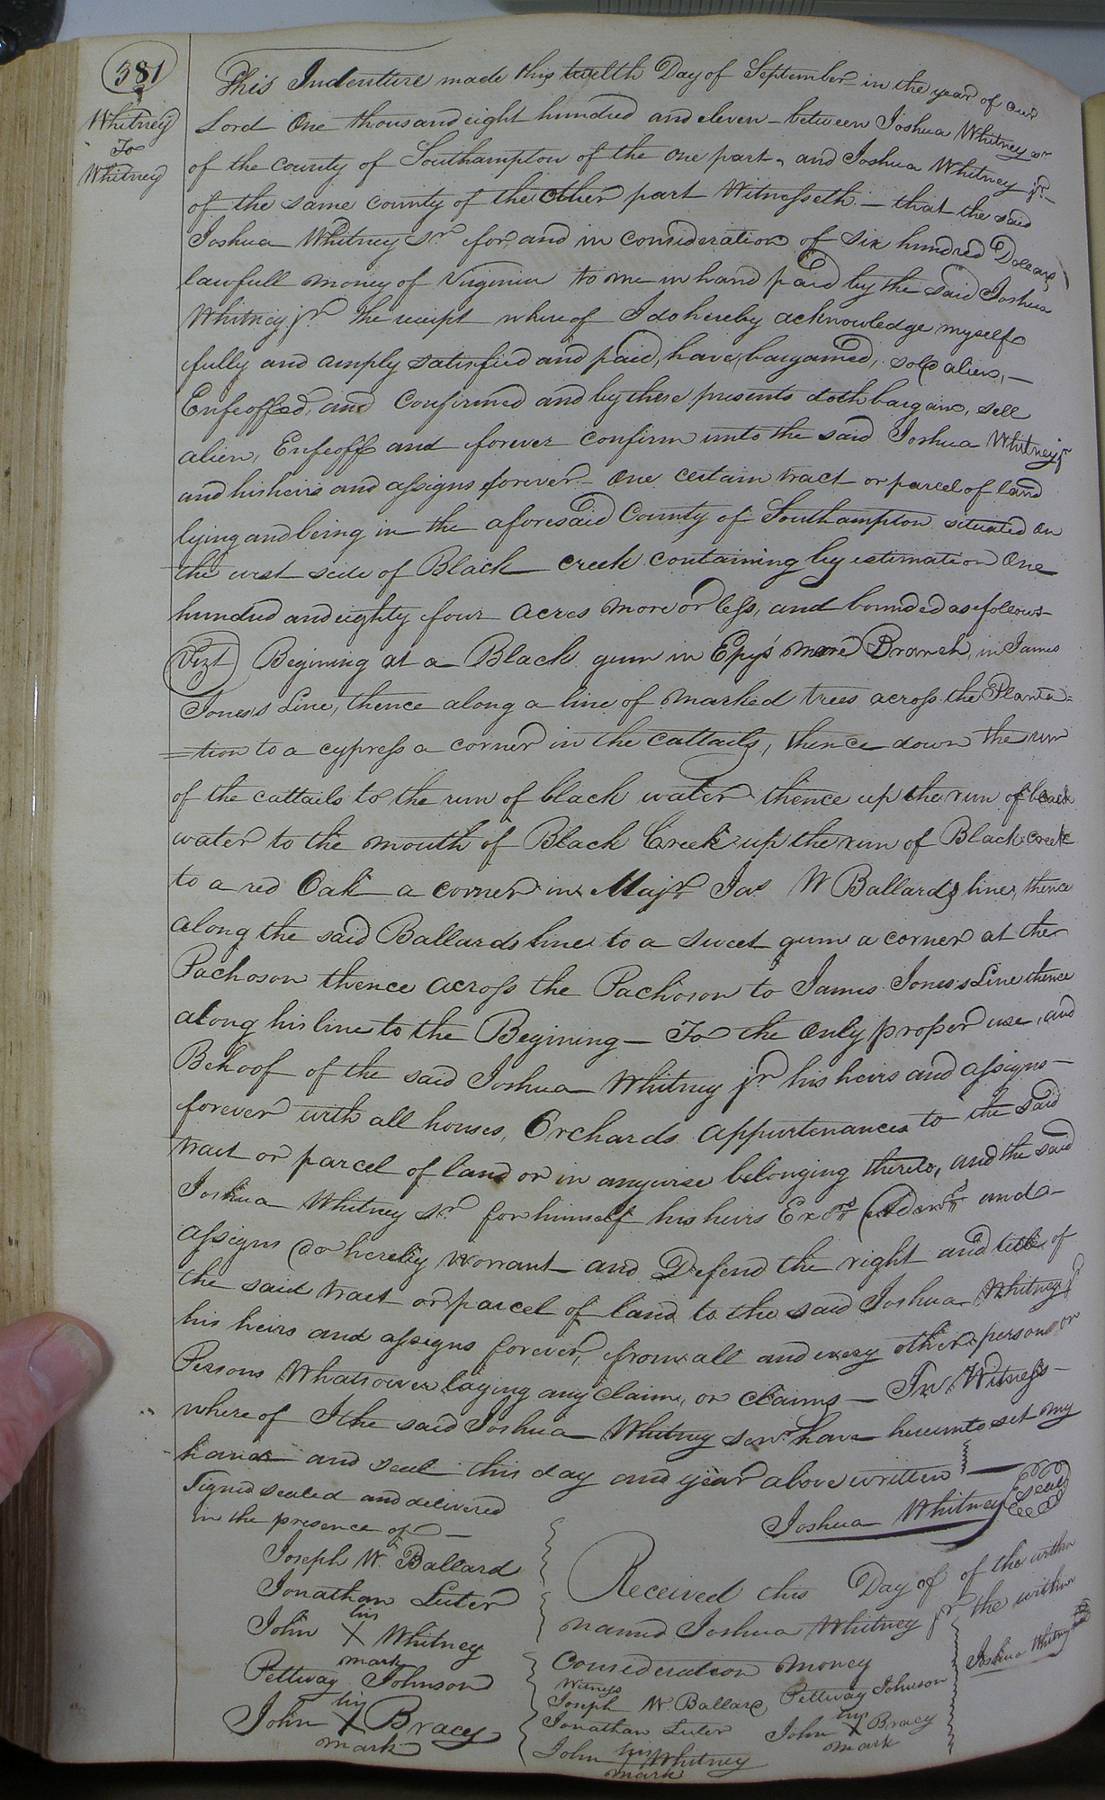 381
Whitney
To
Whitney
This Indenture made this twelth Day of September in the year of our
Lord One thousand eight hundred and eleven - between Joshua Whitney sr
of the county of Southampton of the one part, and Joshua Whitney jr -
of the same county of the other part Witnesseth - that the said
Joshua Whitney Sr for and in consideration of six hundred Dollars
lawfull money of Virginia to me in hand paid by the said Joshua
Whitney jr the receipt where of I do hereby acknowledge myself
fully and amply satisfied and paid, have, bargained, sold alien, -
Enfeoffed, and Confirmed and by these presents doth bargain, sell
alien, Enfeoff and forever confirm unto the said Joshua Whitney jr
and his heirs and assigns forever - One certain tract or parcel of land
lying and being in the aforesaid County of Southampton situated on
the west side of Black creek containing by estimation One
hundred and eighty four acres more or less, and bounded as follows -
Vizt Begining at a Black gum in Epy's Branch, in James
Jones's Line, thence along a line of marked trees across the Planta=
=tion to a cypress a corner in the cattails, thence down the run
of the cattails to the run of black water thence up the run of black
water to the mouth of Black Creek up the run of Black creek
to a red Oak a corner in Majr Jas W Ballards line, thence
along the said Ballards line to a sweet gum a corner at the
Pachoson thence across the Pachoson to James Jones's Line thence
along his line to the Begining - To the only proper use, and
Behoof of the said Joshua Whitney jr his heirs and assigns -
forever with all houses, Orchards appurtenances to the said
tract or parcel of land or in anywise belonging thereto, and the said
Joshua Whitney Sr for himself his heirs Exrs Admrs and -
assigns do hereby warrant and Defend the right and title of
the said tract or parcel of land to the said Joshua Whitney jr
his heirs and assigns forever, from all and every other person or
Persons Whatsoever laying any claim, or claims - In Witness -
where of I the said Joshua Whitney senr have hereunto set my
hand and seal this day and year above written -
Signed sealed and delivered
in the presence of -
Joshua Whitney Seal
Joseph W. Ballard
Jonathan Luter
his
John X Whitney
mark
Pettway Johnson
his
John X Bracey
mark
Received this Day of of the within
named Joshua Whitney jr the within
Consideration money
Joshua Whitney
Witness
Joseph W Ballard Pettway Johnson
Jonathan Luter
his
John X Bracy
mark
John his Whitney
mark